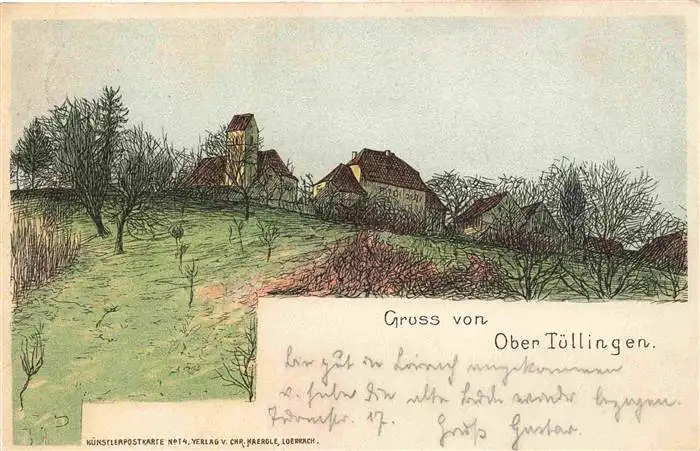 Gruss von
Ober Tüllingen.
Bin gut in Lörrach angekommen
u. habe die alte Bude wieder bezogen.
17.
Gruß Gustav.
KÜNSTLERPOSTKARTE No 14, VERLAG V. CHR. HAERDLE, LOERRACH.